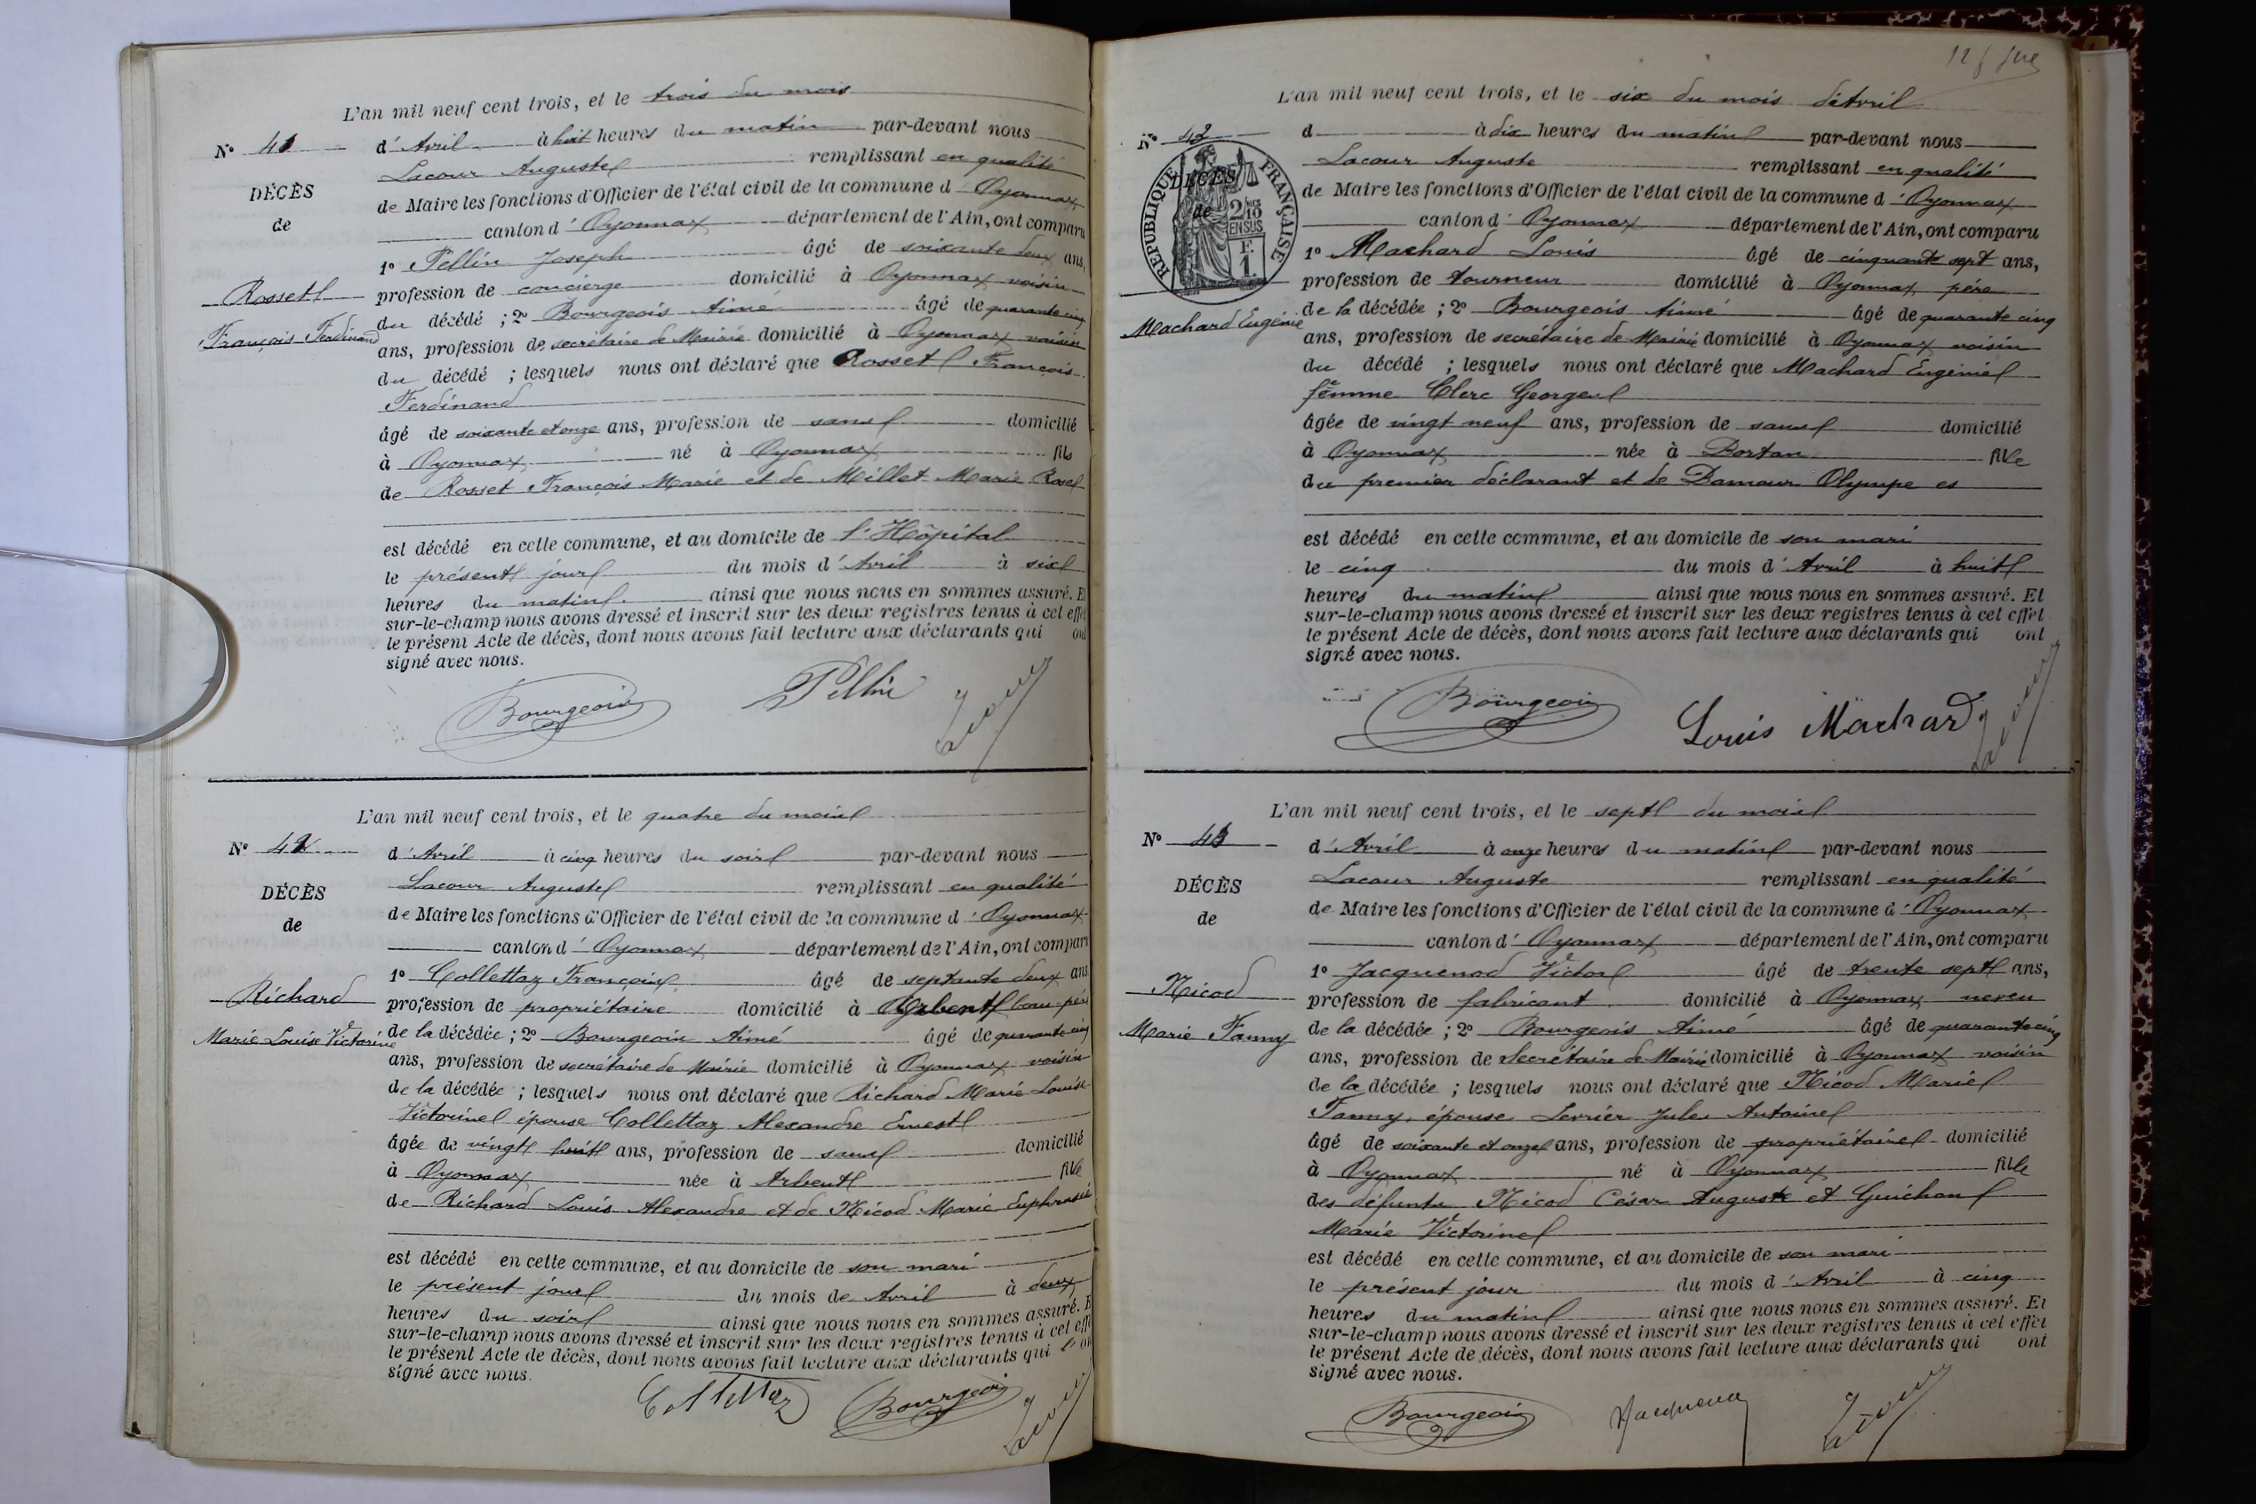 L'an mil neuf cent trois, et le trois du mois
N° 41
d'Avril à huit heures du matin par-devant nous
Lacour Auguste remplissant en qualité
DÉCÈS
de Maire les fonctions d'Officier de l'état civil de la commune d'Oyonnax
de
canton d'Oyonnax département de l'Ain, ont comparu
1° Pellin Joseph âgé de soixante deux ans,
Rosset
profession de concierge domicilié à Oyonnax voisin
François Ferdinand
du décédé ; 2° Bourgeois Aimé âgé de quarante cinq
ans, profession de secrétaire de Mairie domicilié à Oyonnax voisin
du décédé ; lesquels nous ont déclaré que Rosset François
Ferdinand
âgé de soixante et onze ans, profession de sans domicilié
à Oyonnax né à Oyonnax fils
de Rosset François Marie et de Millet Marie Rose
est décédé en cette commune, et au domicile de l'Hôpital
le présent jour du mois d'Avril à six
heures du matin ainsi que nous nous en sommes assuré. Et
sur-le-champ nous avons dressé et inscrit sur les deux registres tenus à cet effet
le présent Acte de décès, dont nous avons fait lecture aux déclarants qui ont
signé avec nous.
Bourgeois Pellin Lacour
L'an mil neuf cent trois, et le quatre du mois
N° 42
d'Avril à cinq heures du soir par-devant nous
Lacour Auguste remplissant en qualité
DÉCÈS
de Maire les fonctions d'Officier de l'état civil de la commune d'Oyonnax
de
canton d'Oyonnax département de l'Ain, ont comparu
1° Collettaz François âgé de septante deux ans
Richard
profession de propriétaire domicilié à Arbent beau-père
Marie Louise Victorine
de la décédée ; 2° Bourgeois Aimé âgé de quarante cinq
ans, profession de secrétaire de Mairie domicilié à Oyonnax voisin
de la décédée ; lesquels nous ont déclaré que Richard Marie Louise
Victorine épouse Collettaz Alexandre Ernest
âgée de vingt huit ans, profession de sans domicilié
à Oyonnax née à Arbent fille
de Richard Louis Alexandre et de Nicod Marie Euphrasie
est décédé en cette commune, et au domicile de son mari
le présent jour du mois de Avril à deux
heures du soir ainsi que nous nous en sommes assuré. Et
sur-le-champ nous avons dressé et inscrit sur les deux registres tenus à cet effet
le présent Acte de décès, dont nous avons fait lecture aux déclarants qui ont
signé avec nous.
Collettaz Bourgeois Lacour
L'an mil neuf cent trois, et le six du mois d'Avril
N° 42
d à dix heures du matin par-devant nous
Lacour Auguste remplissant en qualité
RÉPUBLIQUE FRANÇAISE
2/10 EN SUS
F. 1.
DÉCÈS
de Maire les fonctions d'Officier de l'état civil de la commune d'Oyonnax
de
canton d'Oyonnax département de l'Ain, ont comparu
1° Machard Louis âgé de cinquante sept ans,
profession de tourneur domicilié à Oyonnax père
Machard Eugénie
de la décédée ; 2° Bourgeois Aimé âgé de quarante cinq
ans, profession de secrétaire de Mairie domicilié à Oyonnax voisin
du décédé ; lesquels nous ont déclaré que Machard Eugénie
femme Clerc Georges
âgée de vingt neuf ans, profession de sans domicilié
à Oyonnax née à Dortan fille
du premier déclarant et de Damour Olympe es
est décédé en cette commune, et au domicile de son mari
le cinq du mois d'Avril à huit
heures du matin ainsi que nous nous en sommes assuré. Et
sur-le-champ nous avons dressé et inscrit sur les deux registres tenus à cet effet
le présent Acte de décès, dont nous avons fait lecture aux déclarants qui ont
signé avec nous.
Bourgeois Louis Machard Lacour
L'an mil neuf cent trois, et le sept du mois
N° 43
d'Avril à onze heures du matin par-devant nous
Lacour Auguste remplissant en qualité
DÉCÈS
de Maire les fonctions d'Officier de l'état civil de la commune d'Oyonnax
de
canton d'Oyonnax département de l'Ain, ont comparu
1° Jacquenod Victor âgé de trente sept ans,
Nicod
profession de fabricant domicilié à Oyonnax neveu
Marie Fanny
de la décédée ; 2° Bourgeois Aimé âgé de quarante cinq
ans, profession de Secrétaire de Mairie domicilié à Oyonnax voisin
de la décédée ; lesquels nous ont déclaré que Nicod Marie
Fanny, épouse Levrier Jules Antoine
âgé de soixante et onze ans, profession de propriétaire domicilié
à Oyonnax né à Oyonnax fille
des défunts Nicod César Auguste et Guichon
Marie Victorine
est décédé en cette commune, et au domicile de son mari
le présent jour du mois d'Avril à cinq
heures du matin ainsi que nous nous en sommes assuré. Et
sur-le-champ nous avons dressé et inscrit sur les deux registres tenus à cet effet
le présent Acte de décès, dont nous avons fait lecture aux déclarants qui ont
signé avec nous.
Bourgeois Jacquenod Lacour